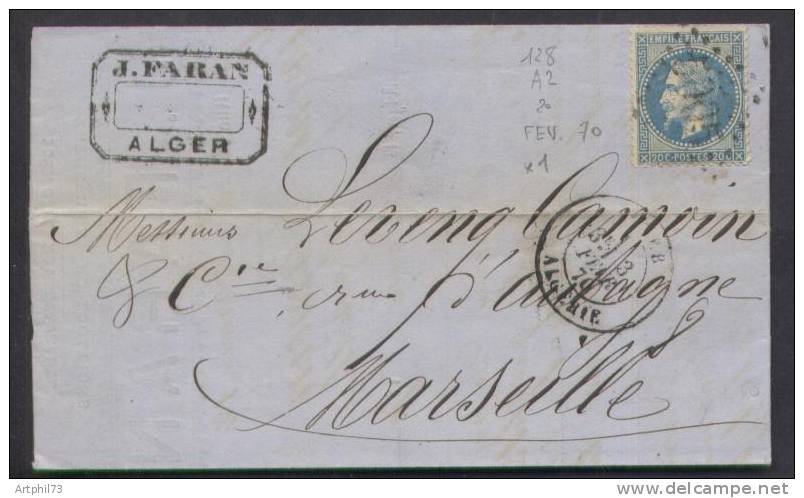 J. FARAN
ALGER
128
A2
20
FEV. 70
x1
EMPIRE FRANCAIS
20 C-POSTES 20 C
Messieurs
& Cie rue d'aubagne
Marseille
3
FEVR
70
ALGERIE
Artphil73
www.delcampe.net